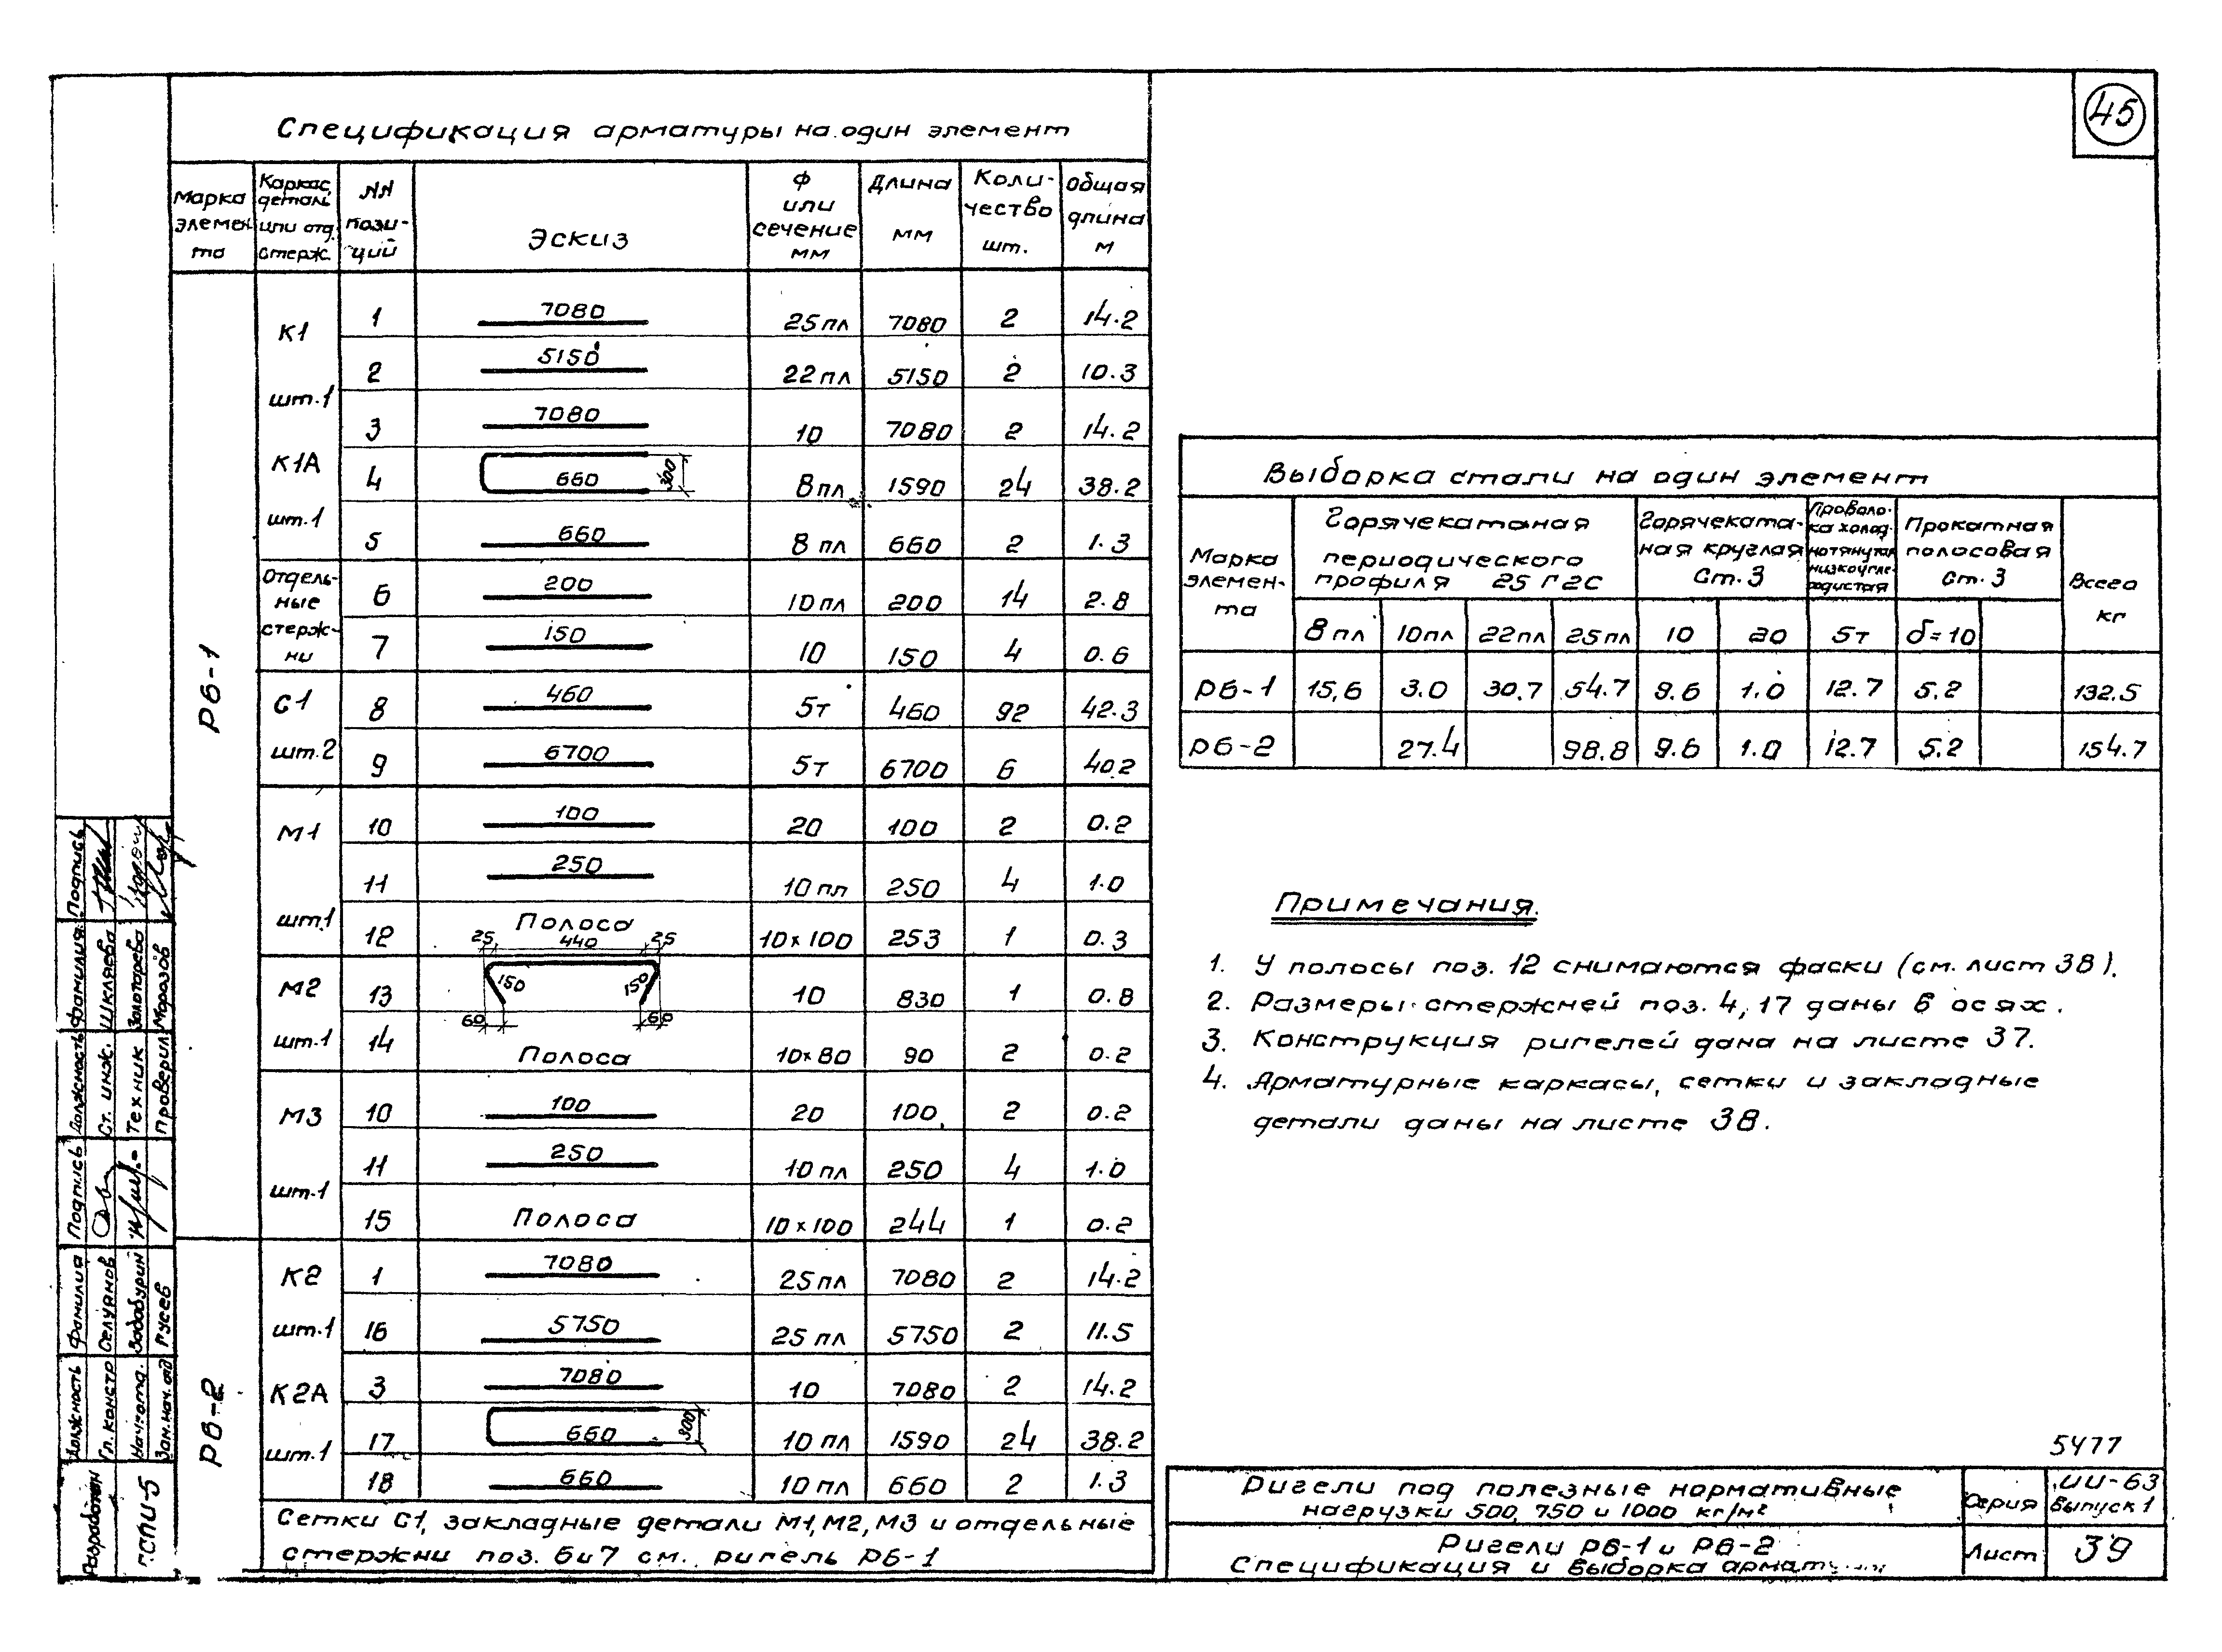 45
Спецификация арматуры на один элемент
Марка элемента | Каркас, деталь или отд. стерж. | NN позиций | Эскиз | Ф или сечение мм | Длина мм | Количество шт. | Общая длина м
Р6-1
К1 шт.1
К1А шт.1
1 | 7080 | 25пл | 7080 | 2 | 14.2
2 | 5150 | 22пл | 5150 | 2 | 10.3
3 | 7080 | 10 | 7080 | 2 | 14.2
4 | 660 300 | 8пл | 1590 | 24 | 38.2
5 | 660 | 8пл | 660 | 2 | 1.3
Отдельные стержни
6 | 200 | 10пл | 200 | 14 | 2.8
7 | 150 | 10 | 150 | 4 | 0.6
С1 шт.2
8 | 460 | 5т | 460 | 92 | 42.3
9 | 6700 | 5т | 6700 | 6 | 40.2
М1 шт1
10 | 100 | 20 | 100 | 2 | 0.2
11 | 250 | 10пл | 250 | 4 | 1.0
12 | Полоса | 10×100 | 253 | 1 | 0.3
М2 шт.1
13 | 25 440 25 150 150 60 60 | 10 | 830 | 1 | 0.8
14 | Полоса | 10×80 | 90 | 2 | 0.2
М3 шт.1
10 | 100 | 20 | 100 | 2 | 0.2
11 | 250 | 10пл | 250 | 4 | 1.0
15 | Полоса | 10×100 | 244 | 1 | 0.2
Р6-2
К2 шт.1
К2А шт.1
1 | 7080 | 25пл | 7080 | 2 | 14.2
16 | 5750 | 25пл | 5750 | 2 | 11.5
3 | 7080 | 10 | 7080 | 2 | 14.2
17 | 660 300 | 10пл | 1590 | 24 | 38.2
18 | 660 | 10пл | 660 | 2 | 1.3
Сетки С1, закладные детали М1, М2, М3 и отдельные
стержни поз. 6и7 см. ригель Р6-1
Выборка стали на один элемент
Марка элемента | Горячекатаная периодического профиля 25Г2С | Горячекатаная круглая Ст.3 | Проволока холоднотянутая низкоуглеродистая | Прокатная полосовая Ст.3 | Всего кг
8пл | 10пл | 22пл | 25пл | 10 | 20 | 5т | δ=10
Р6-1 | 15,6 | 3.0 | 30.7 | 54.7 | 9.6 | 1.0 | 12.7 | 5.2 | 132.5
Р6-2 | 27.4 | 98.8 | 9.6 | 1.0 | 12.7 | 5.2 | 154.7
Примечания.
1. У полосы поз. 12 снимаются фаски (см. лист 38).
2. Размеры стержней поз. 4, 17 даны в осях.
3. Конструкция ригелей дана на листе 37.
4. Арматурные каркасы, сетки и закладные
детали даны на листе 38.
5477
Ригели под полезные нормативные
нагрузки 500, 750 и 1000 кг/м²
Серия
ИИ-63
Выпуск 1
Ригели Р6-1 и Р6-2
Спецификация и выборка
Лист
39
Должность Фамилия Подпись Должность Фамилия Подпись
Гл. констр Селуянов Ст. инж. Шкляева
Техник
Зам. нач. отд Русев Проверил Морозов
Разработан
ГСПИ-5